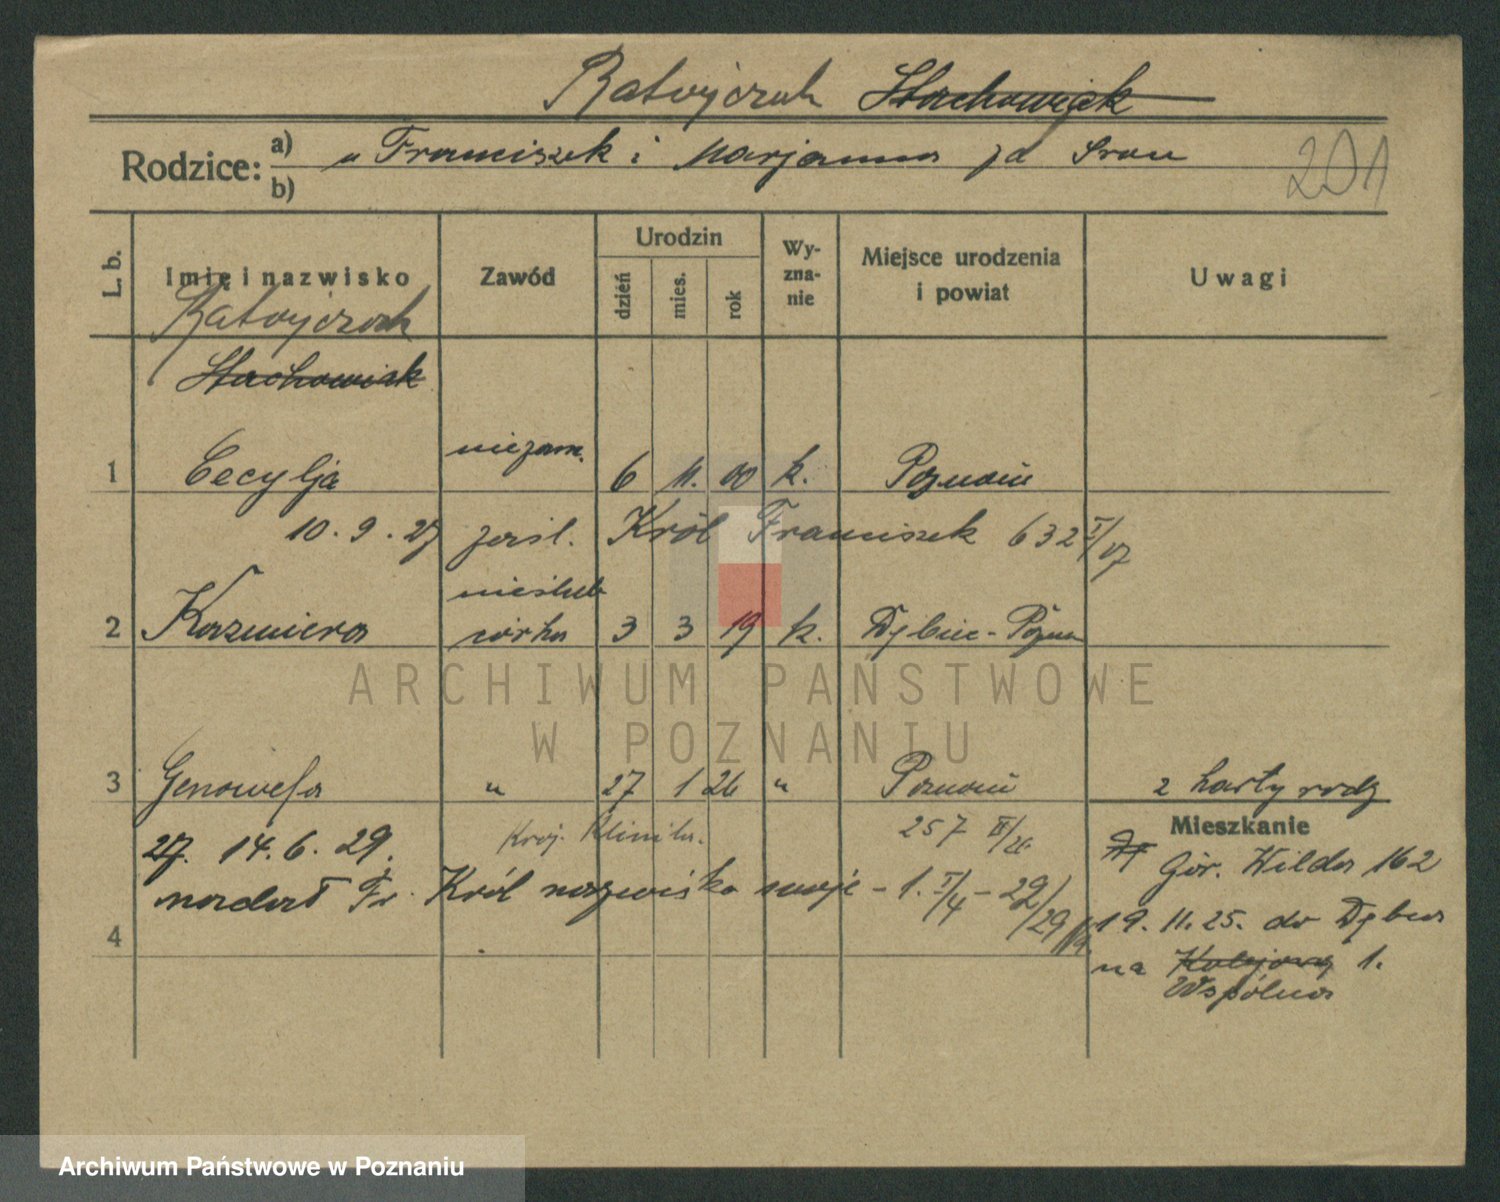 Ratajczak Stachowiak
Rodzice: a) Franciszek i Marjanna
b)
201
L. b. Imię i nazwisko Zawód Urodzin dzień mies. rok Wy-zna-nie Miejsce urodzenia i powiat Uwagi
Ratajczak
Stachowiak
niezam.
1 Cecylja 6 11. 00 k. Poznań
10. 9. 27 zaśl. Król Franciszek 632 I/07
nieślub
2 Kazmiera córka 3 3 19 k. Dębiec - Pozn
ARCHIWUM PAŃSTWOWE
W POZNANIU
3 Genowefa " 27 1 26 " Poznań z karty rodz
257 II/26 Mieszkanie
Kraj. Klinika.
27. 14. 6. 29. Gór. Wilda 162
nadał Fr. Król nazwisko swoje - 1. I/4 - 29/29
19. 11. 25. do Dębca
4
na Kolejową 1.
Wspólna
Archiwum Państwowe w Poznaniu